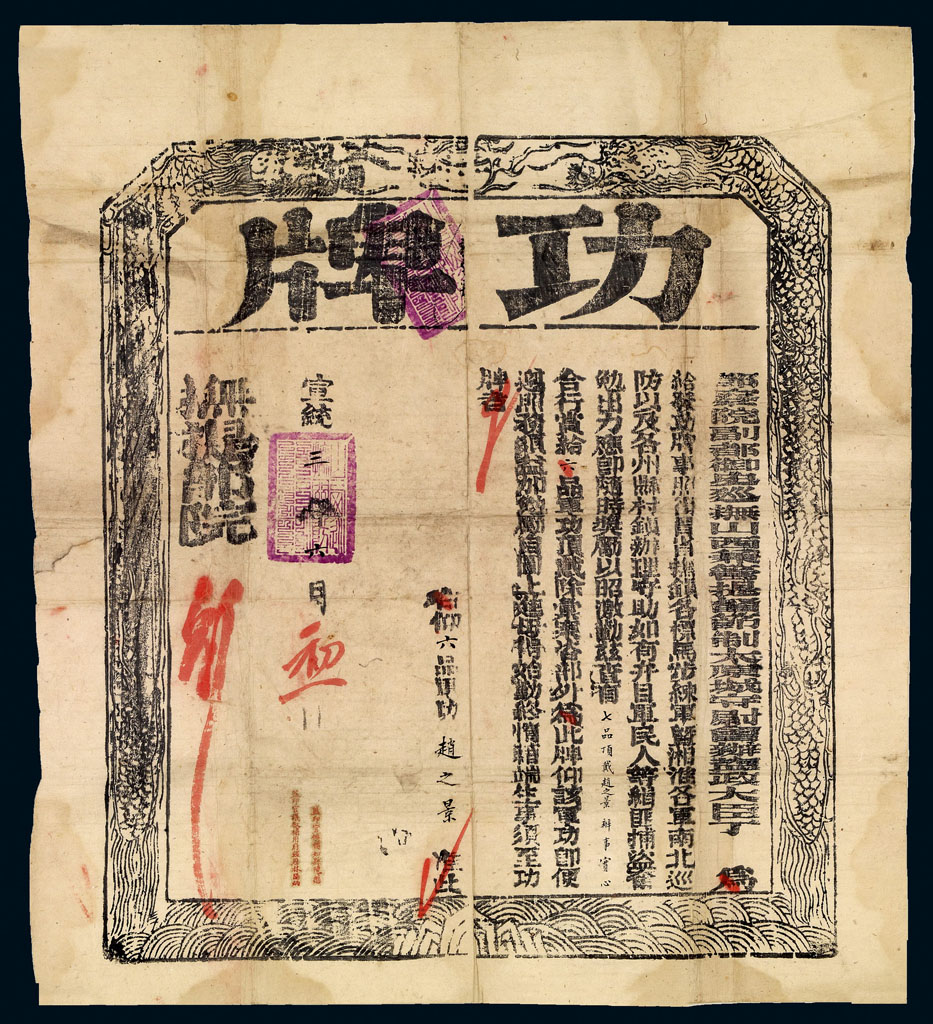 功牌
院副都御史巡撫山西兼管提督節制太原城守尉大臣丁 為
給發功牌事照得晋省撫鎮各標馬步練軍暨湘淮各軍南北巡
防以及各州縣村鎮辦理守助如有弁目軍民人等緝匪捕盜奮
勉出力應即隨時獎勵以昭激勸茲查有七品頂戴趙之景辦事實心
合行賞給六品軍功頂戴除彙案咨部外為此牌仰該軍功即便
遵照祗領益加勉勵圖上進毋得始勤終惰藉端生事須至功
牌者
右仰六品軍功趙之景 准此
宣統三年六月初
撫提部院